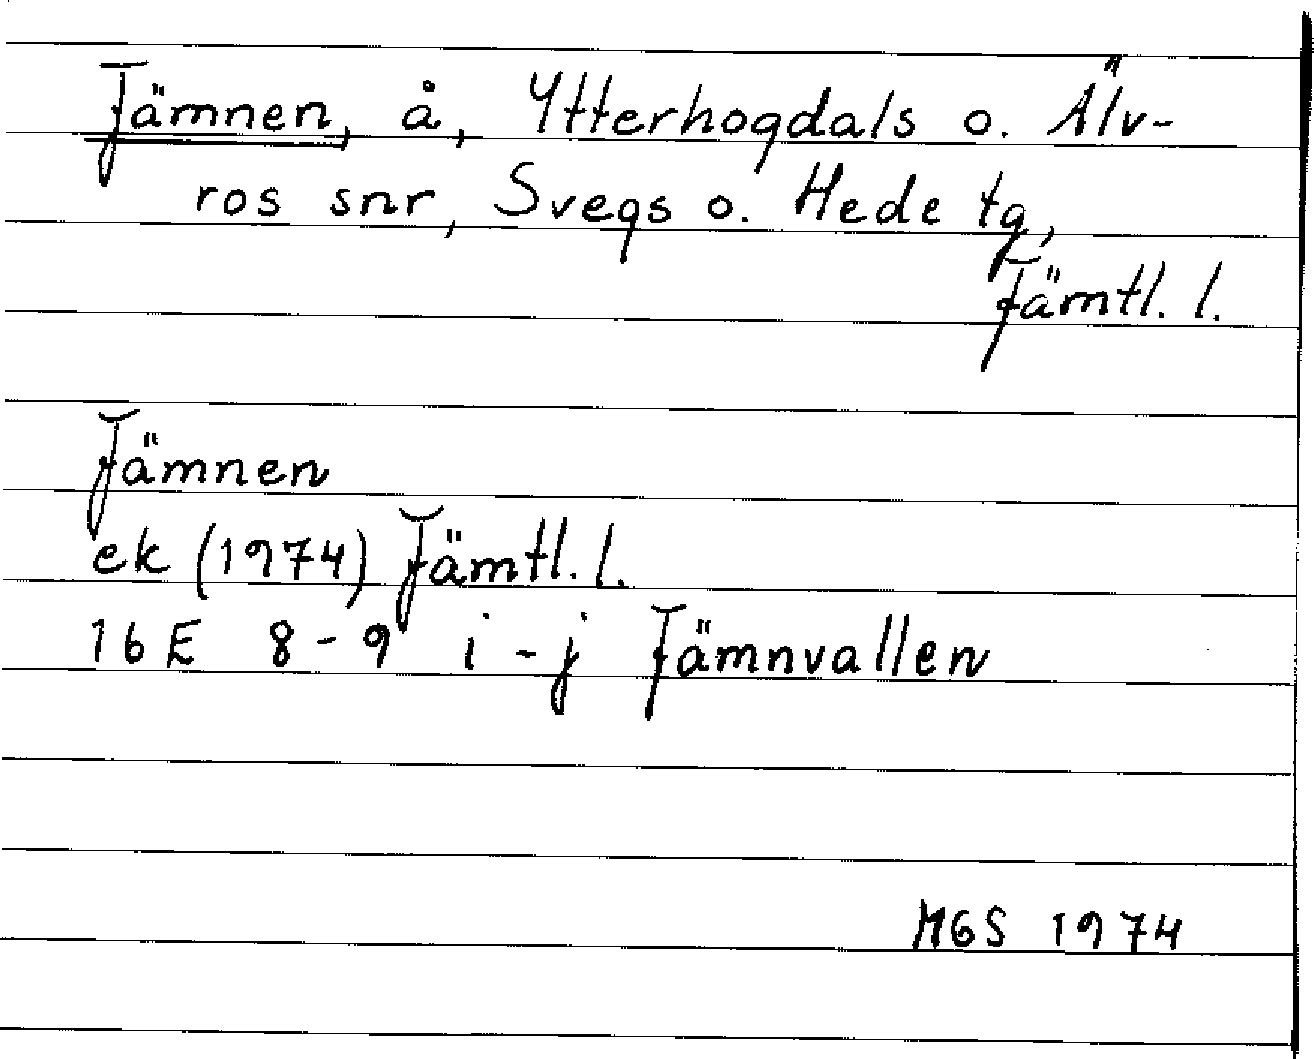 Jämnen, å, Ytterhogdals o. Älv-
ros snr, Svegs o. Hede tg,
Jämtl. l.
Jämnen
ek (1974) Jämtl. l.
16E 8-9 i-j Jämnvallen
MGS 1974